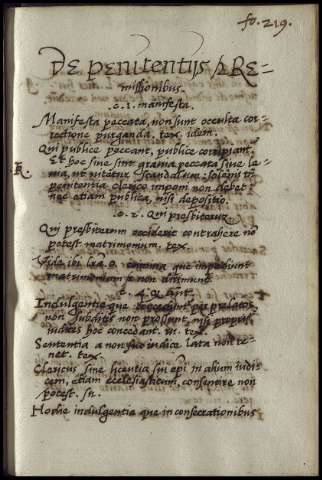 fo. 219.
DE penitentijs & RE=
missionibus.
c. 1. manifesta.
Manifesta peccata, non sunt occulta cor=
rectione purganda. tex. idem.
Qui publice peccant, publice corripiantur
Et hoc sive sint gravia peccata sive le=
via, ut vitetur scandalum: solemnis
penitentia clerico imponi non debet
nec etiam publica, nisi depositio.
R.
c. 2. Qui presbiterum.
Qui presbiterum occiderit contrahere no
potest matrimonium. tex.
Vide ibi que impediunt
matrimonium non dirimunt
c. 4. Quod
Indulgentie que a prelatis
non subditis non prossunt, nisi proprij
iudices hoc concedant. tex.
Sententia a non suo iudice lata non te=
net. tex.
Clericus sine licentia sui epi in alium iudi=
cem, etiam ecclesiasticum, consentire non
potest. in.
Hodie indulgentie que in consecrationibus